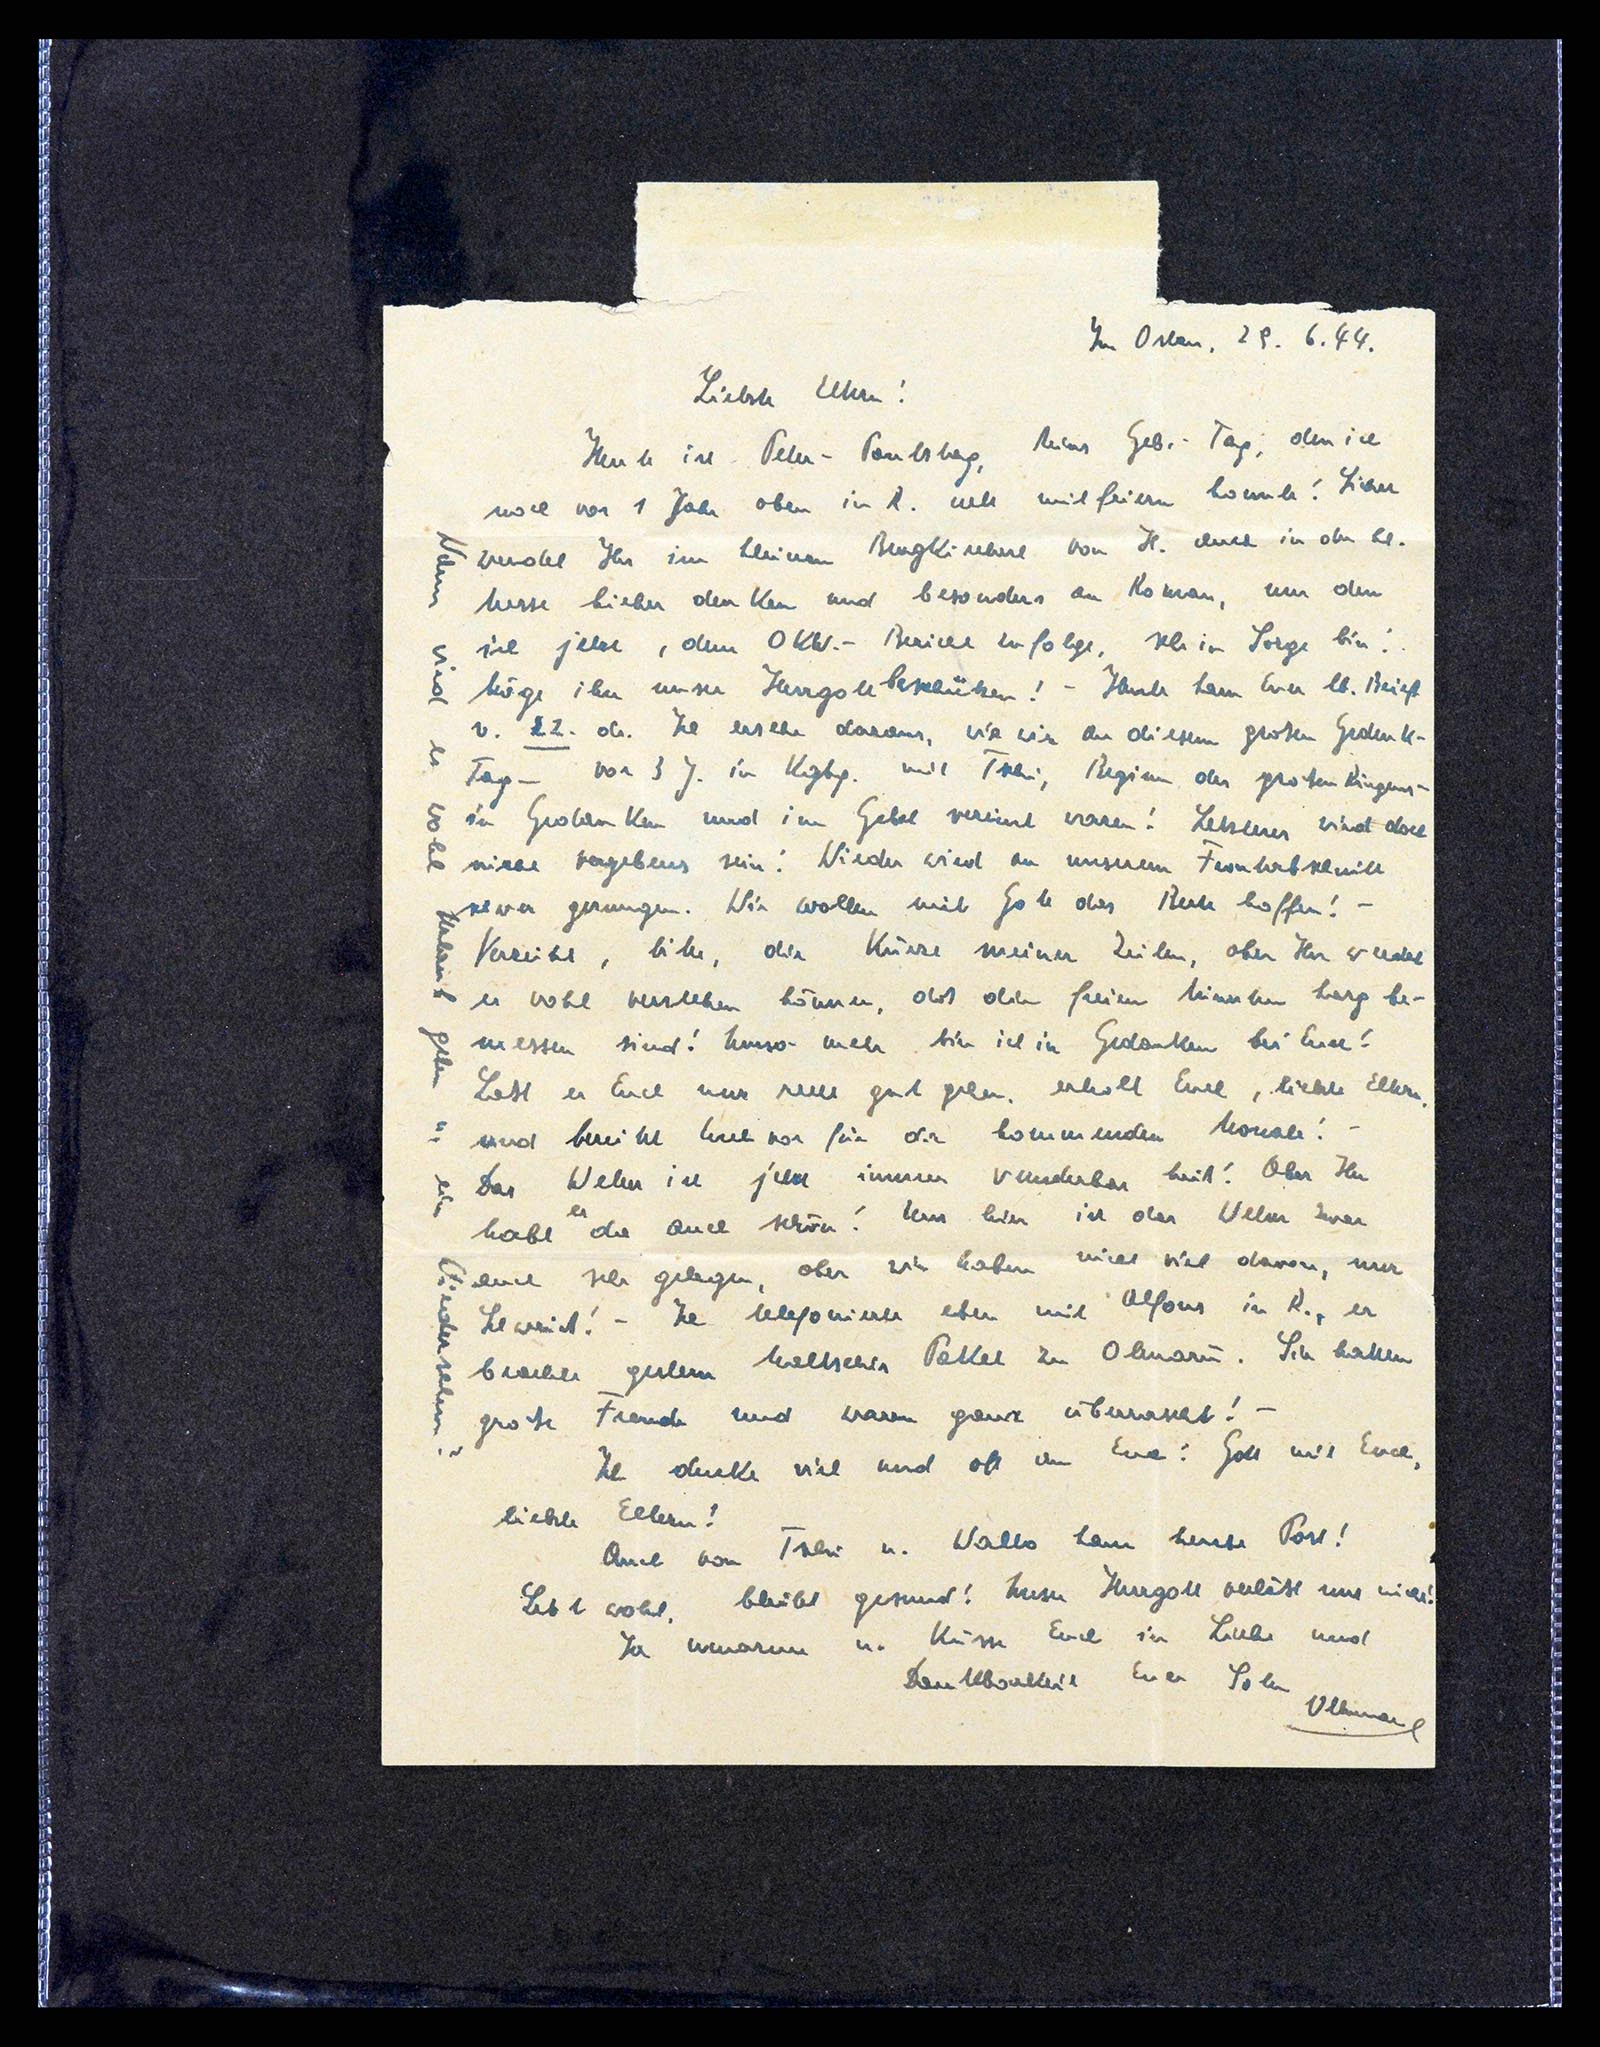 Im Osten, 29. 6. 44.
Liebste Eltern!
Heute ist Peter-Paulstag, Geb.-Tag, den ich
noch vor 1 Jahr oben in R. mitfeiern konnte! Sicher
werdet Ihr im kleinen Bergkircherl von H. auch in der hl.
Messe hieher denken und besonders an Roman, um den
ich jetzt, dem OKW.-Bericht zufolge, sehr in Sorge bin!
Möge ihn unser Herrgott beschützen! - Heute kam Euer lb. Brief
v. 22. ds. Ich ersehe daraus, wie wir an diesem großen Gedenk-
Tag - vor 3 J. in mit Beginn des großen Ringens -
in Gedanken und im Gebet vereint waren! Letzteres wird doch
nicht vergebens sein! Wieder wird an unserem Frontabschnitt
schwer gerungen. Wir wollen mit Gott das Beste hoffen! -
Verzeiht, bitte, die Kürze meiner Zeilen, aber Ihr werdet
es wohl verstehen können, daß die freien Minuten karg be-
messen sind! Umso mehr bin ich in Gedanken bei Euch!
Laßt es Euch nur recht gut gehen, erholt Euch, liebste Eltern,
und bereitet Euch vor für die kommenden Monate! -
Das Wetter ist jetzt immer wunderbar heiß! Aber Ihr
habt es da auch schön! Uns hier ist das Wetter zwar
auch sehr gelegen, aber wir haben nicht viel davon, nur
Schweiß! - Ich telefonierte eben mit Alfons in R., er
brachte gestern Paket zu Sie hatten
große Freude und waren ganz überrascht! -
Ich denke viel und oft an Euch! Gott mit Euch,
liebste Eltern!
Auch von u. kam heute Post!
Lebt wohl, bleibt gesund! Unser Herrgott verläßt uns nicht!
Ich umarme u. küsse Euch in Liebe und
Dankbarkeit Euer Sohn
Volkmar
Wann wird es wohl Urlaub geben u. ein Wiedersehen?